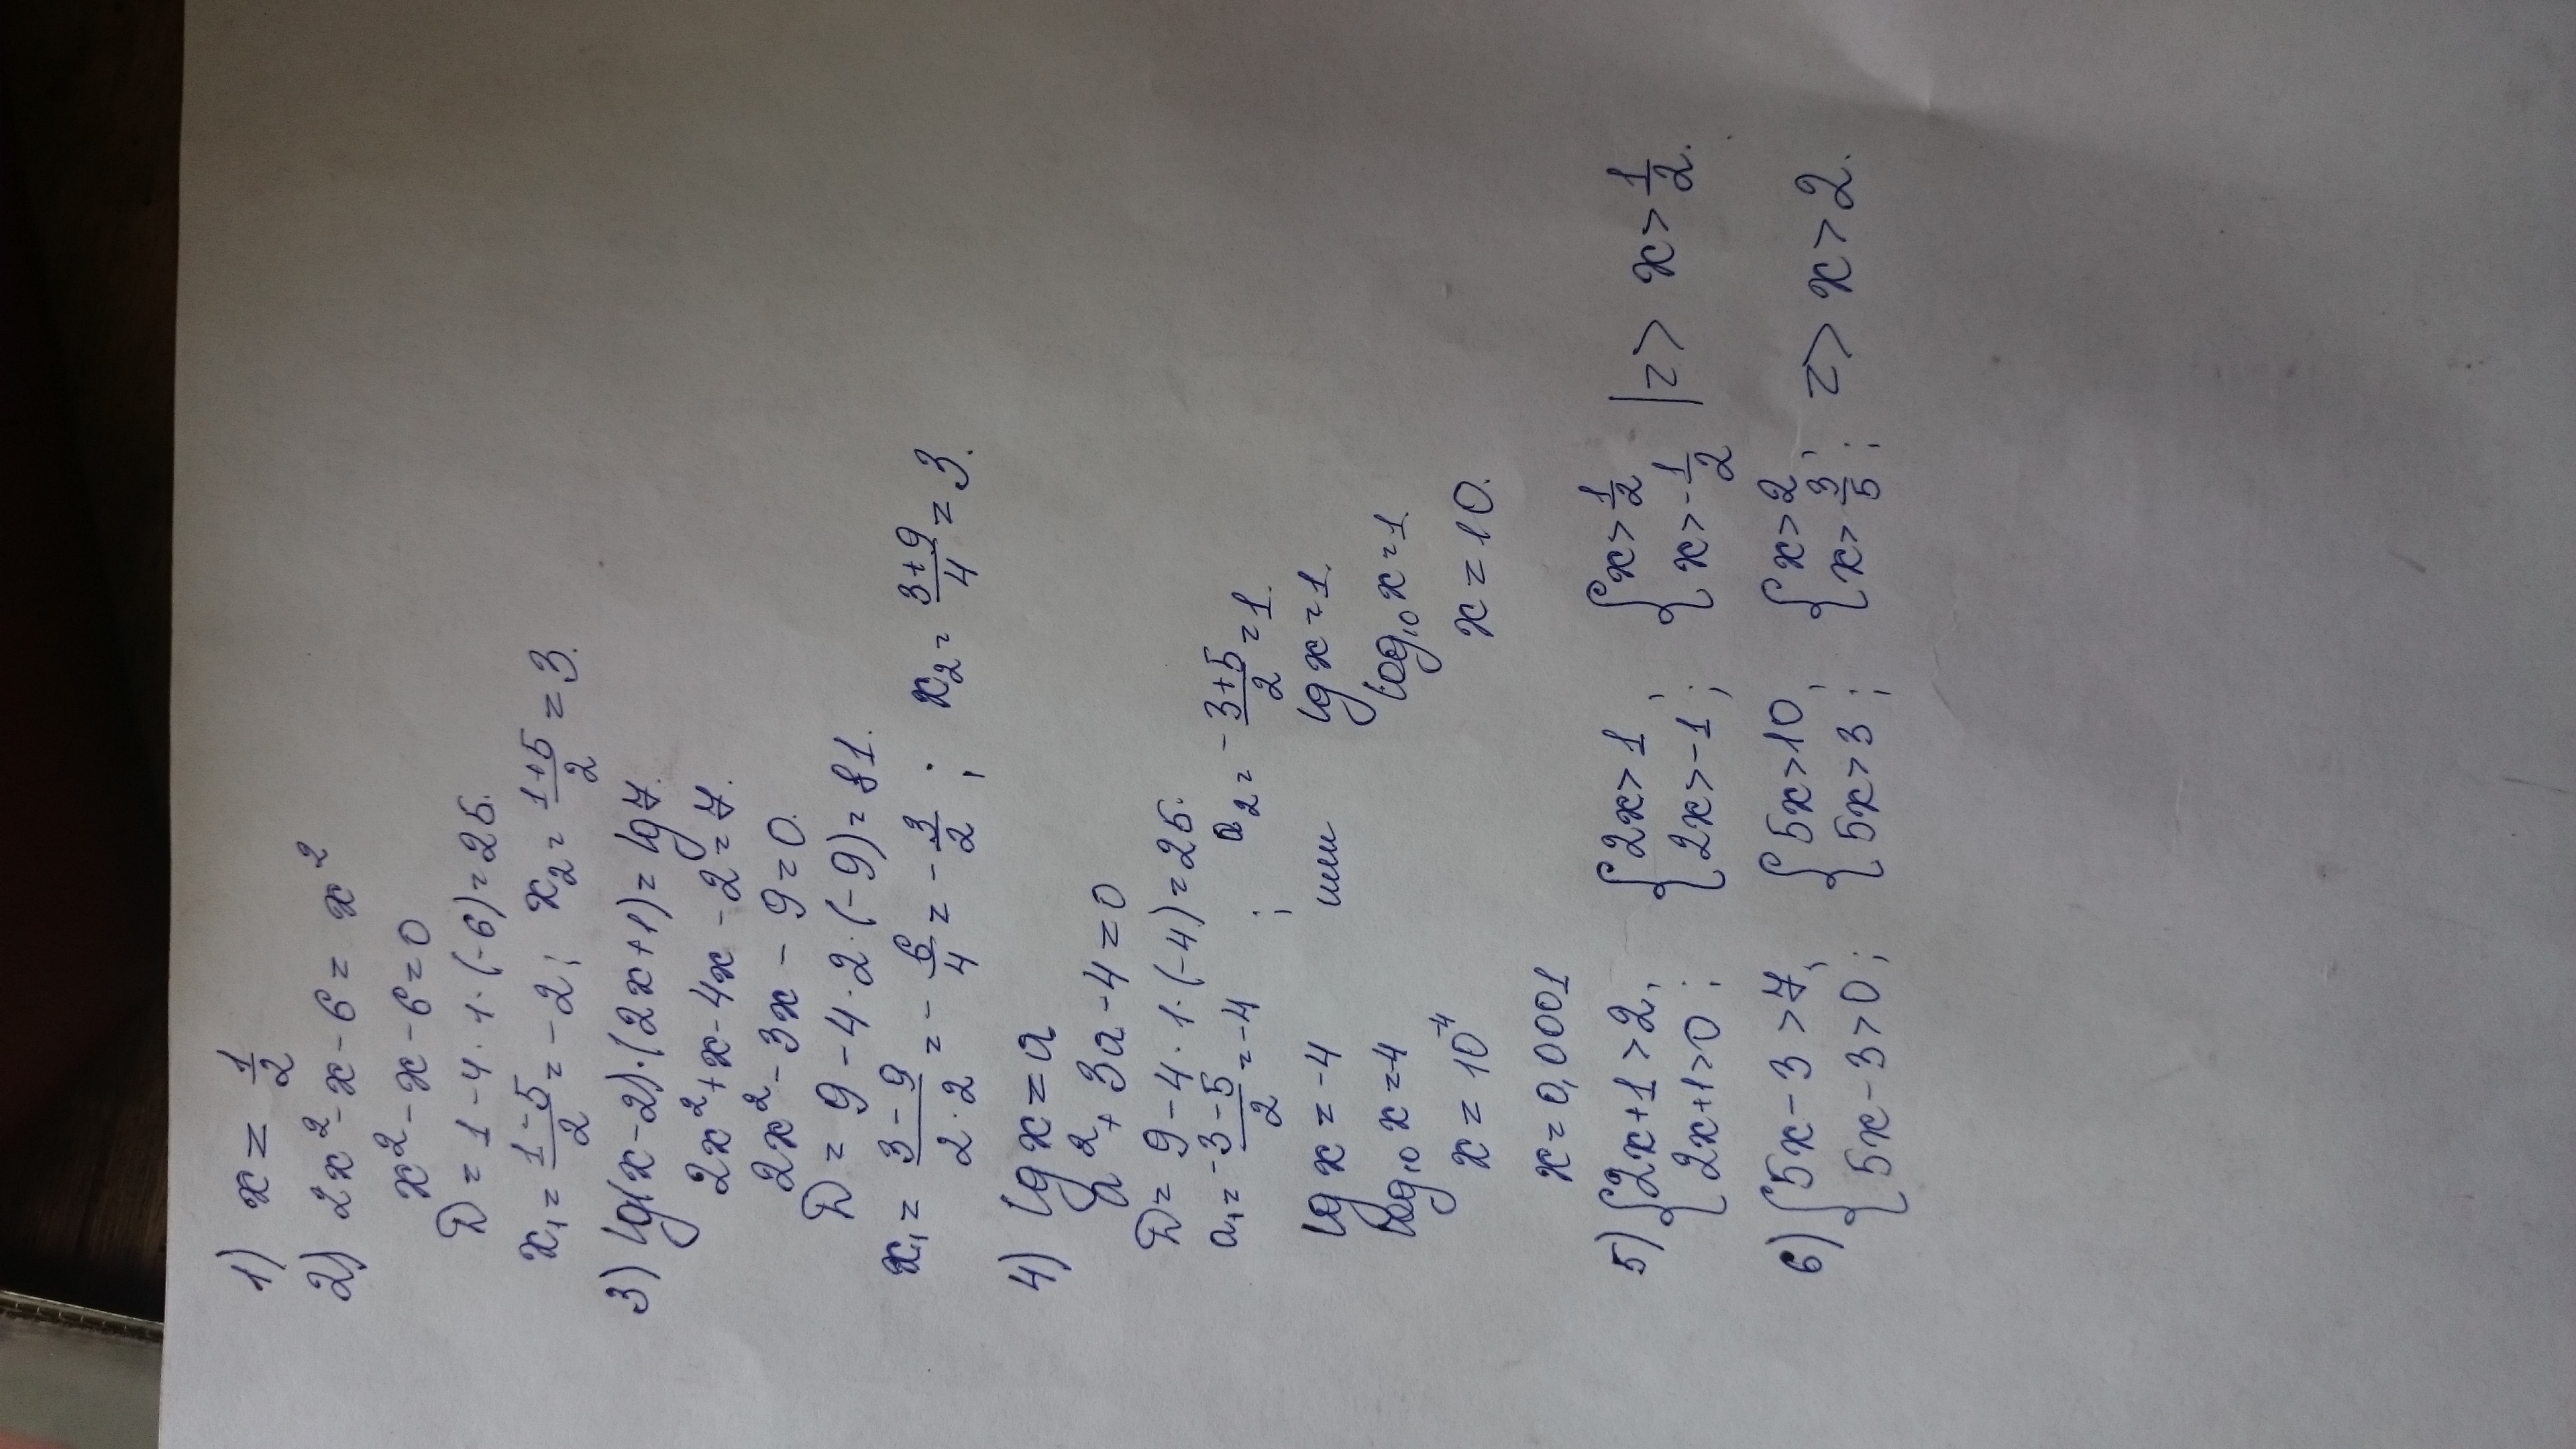 1) x = 1/2
2) 2x² - x - 6 = x²
x² - x - 6 = 0
D = 1 - 4 · 1 · (-6) = 25.
x₁ = (1 - 5)/2 = -2; x₂ = (1 + 5)/2 = 3.
3) lg(x - 2) · (2x + 1) = lg 7.
2x² + x - 4x - 2 = 7.
2x² - 3x - 9 = 0.
D = 9 - 4 · 2 · (-9) = 81.
x₁ = (3 - 9)/(2 · 2) = -6/4 = -3/2; x₂ = (3 + 9)/4 = 3.
4) lg x = a
a² + 3a - 4 = 0
D = 9 - 4 · 1 · (-4) = 25.
a₁ = (-3 - 5)/2 = -4; a₂ = (-3 + 5)/2 = 1.
lg x = -4 или lg x = 1.
log₁₀ x = -4 log₁₀ x = 1
x = 10⁻⁴ x = 10.
x = 0,0001
5) { 2x + 1 > 2, { 2x > 1; { x > 1/2 | => x > 1/2.
{ 2x + 1 > 0; { 2x > -1; { x > -1/2
6) { 5x - 3 > 7, { 5x > 10; { x > 2; => x > 2.
{ 5x - 3 > 0; { 5x > 3; { x > 3/5;